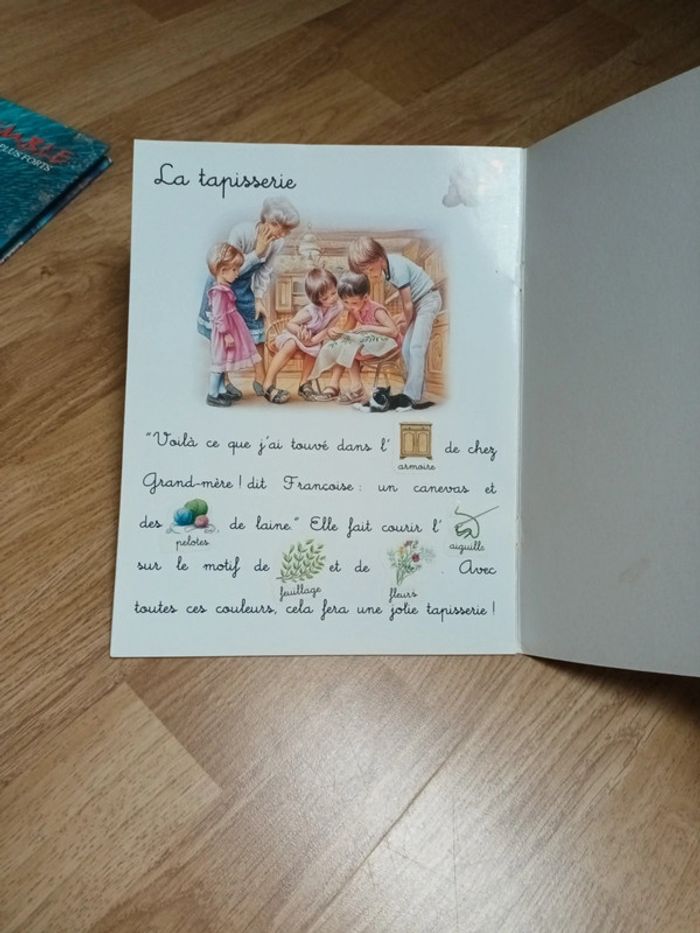 EMBLE
PLUS FORTS
La tapisserie
"Voilà ce que j'ai touvé dans l' armoire de chez
Grand-mère ! dit Françoise : un canevas et
des pelotes de laine." Elle fait courir l' aiguille
sur le motif de feuillage et de fleurs. Avec
toutes ces couleurs, cela fera une jolie tapisserie !